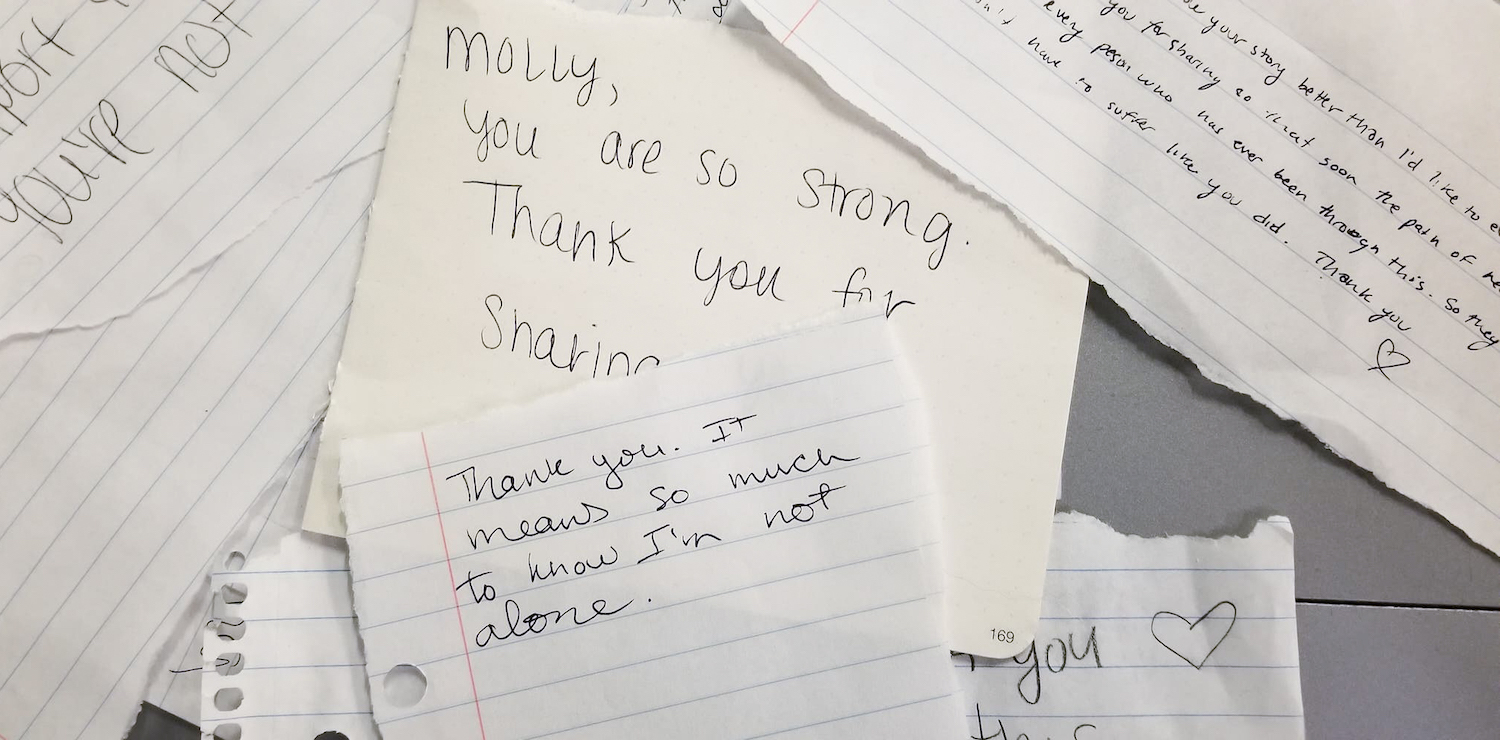 you're not
Molly,
you are so strong.
Thank you for
Sharing
Thank you. It
means so much
to know I'm not
alone.
your story better than I'd like to
you for sharing so that soon the pain of
every person who has ever been through this. So they
have to suffer like you did. Thank you
♡
169
you ♡